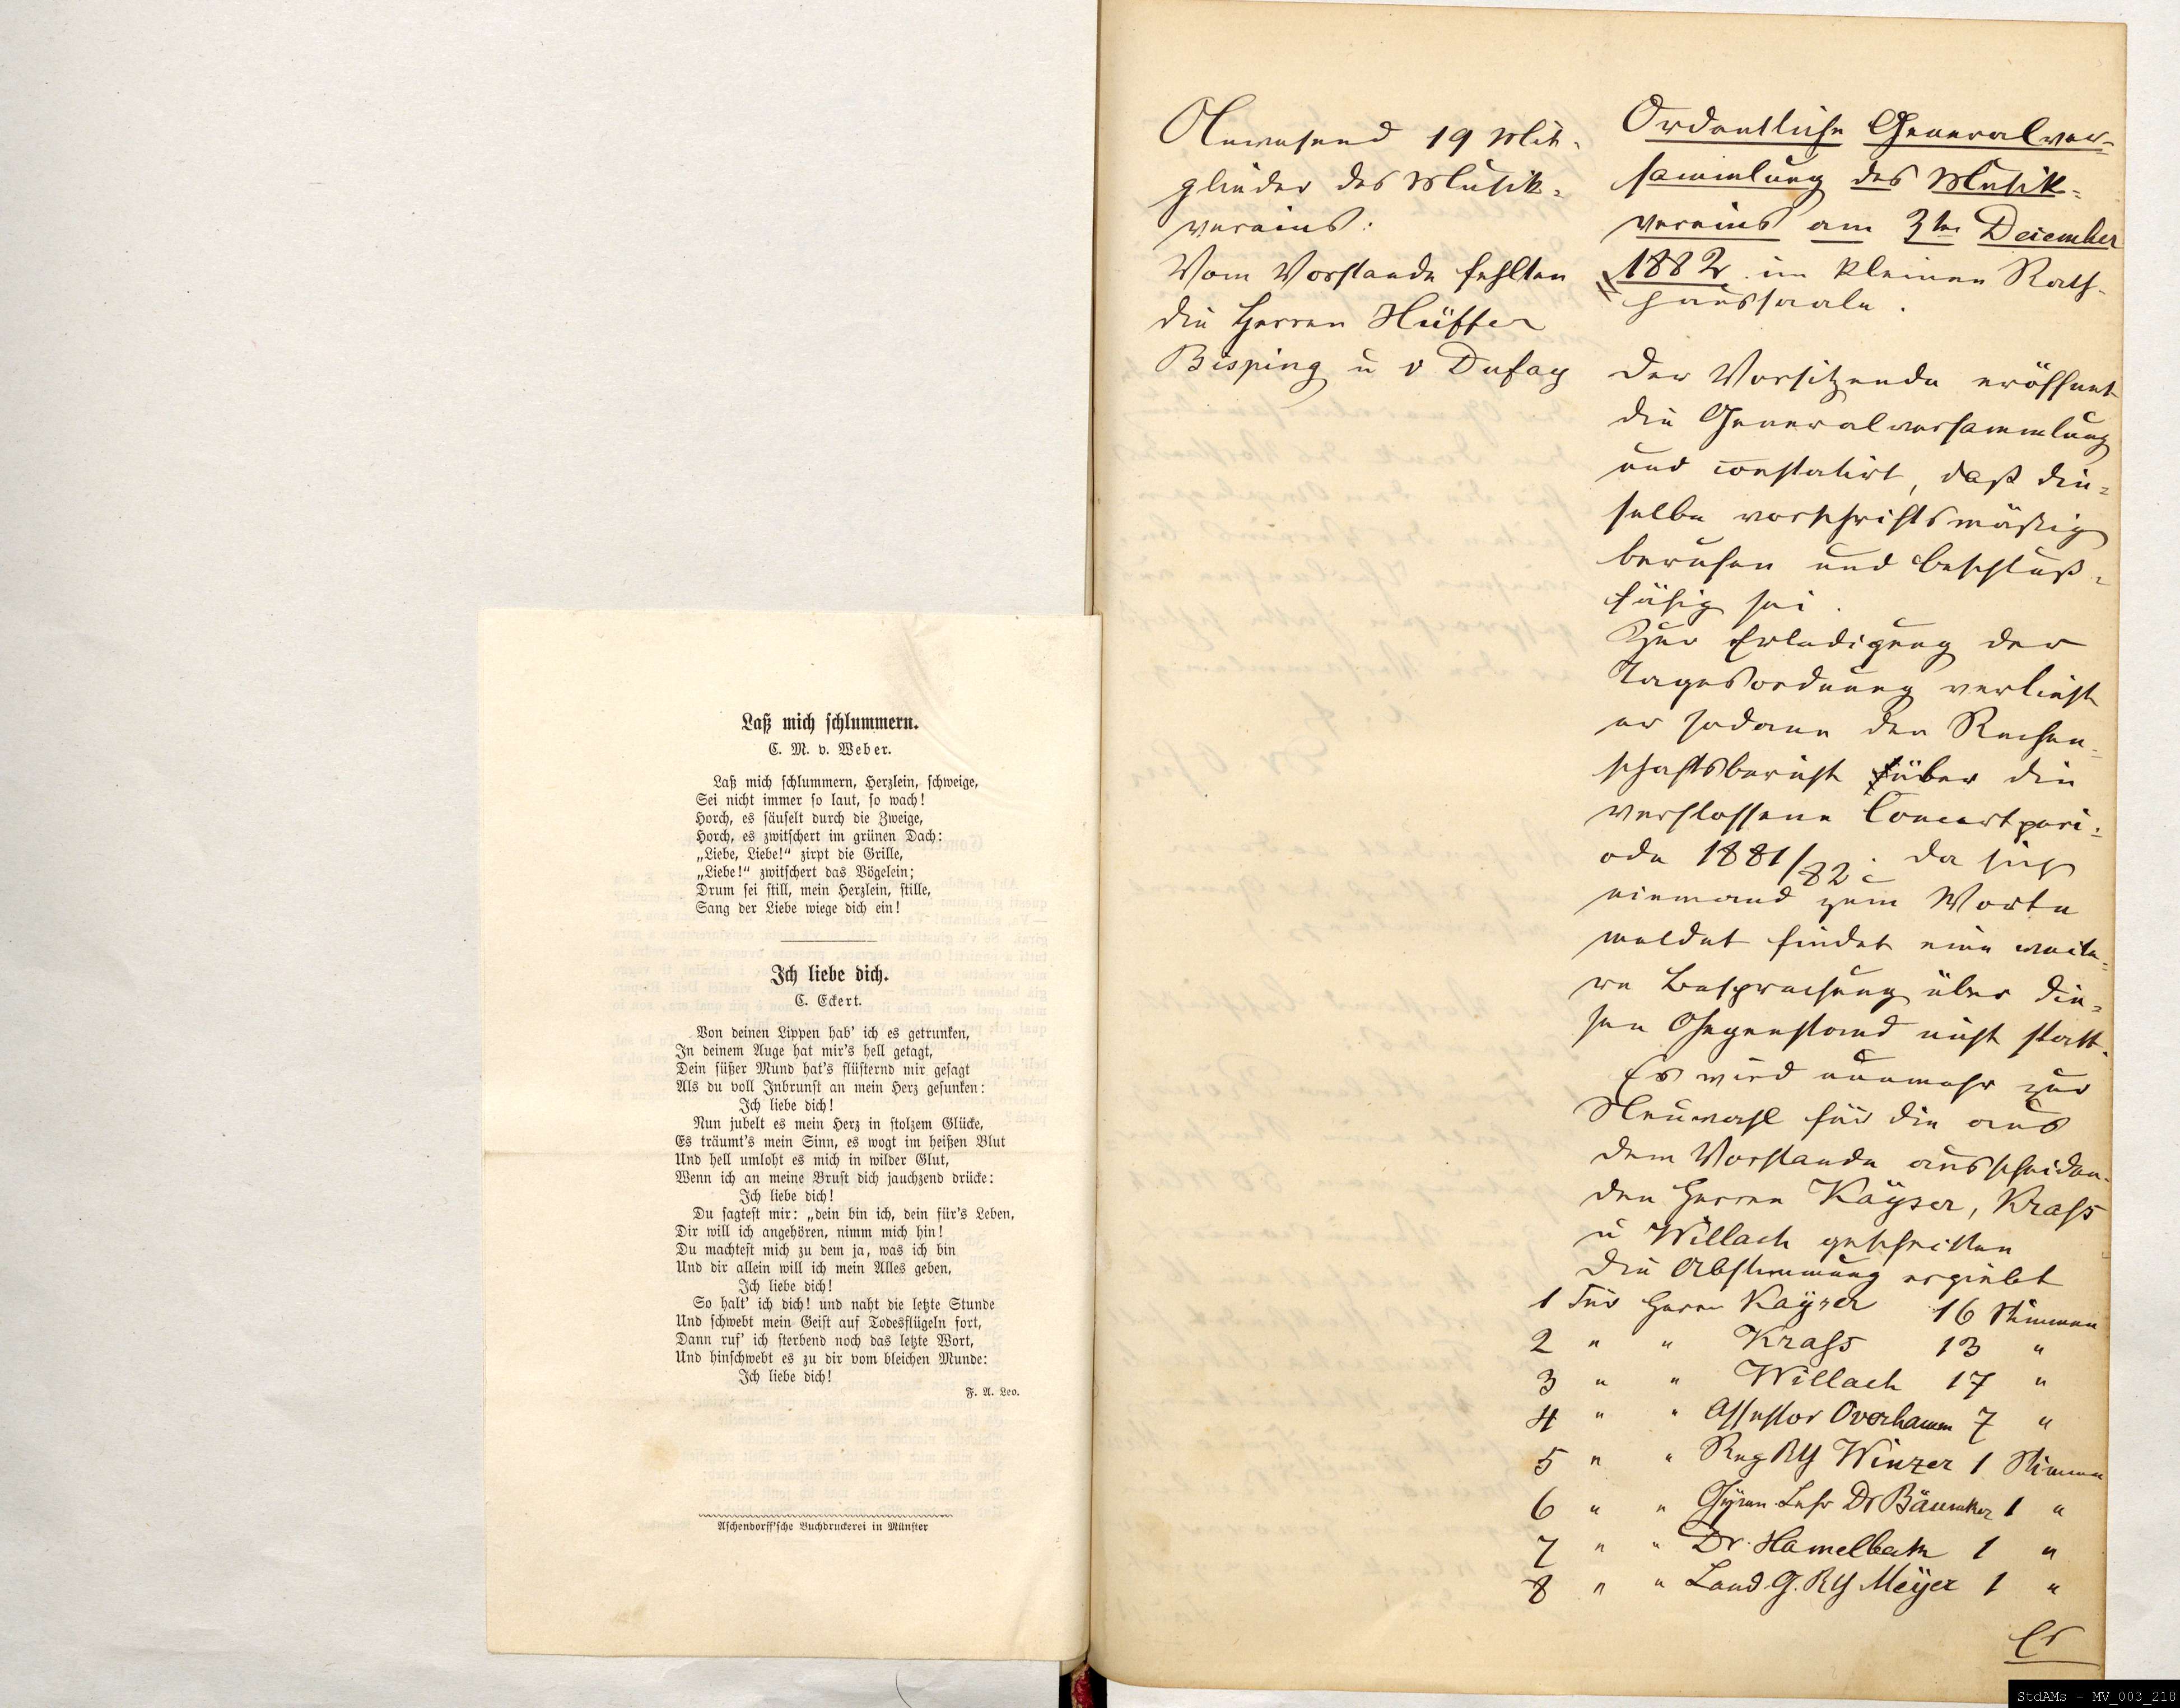 Laß mich schlummern.
C. M. v. Weber.
Laß mich schlummern, Herzlein, schweige,
Sei nicht immer so laut, so wach!
Horch, es säuselt durch die Zweige,
Horch, es zwitschert im grünen Dach:
„Liebe, Liebe!“ zirpt die Grille,
„Liebe!“ zwitschert das Vögelein;
Drum sei still, mein Herzlein, stille,
Sang der Liebe wiege dich ein!
Ich liebe dich.
C. Eckert.
Von deinen Lippen hab' ich es getrunken,
In deinem Auge hat mir's hell getagt,
Dein süßer Mund hat's flüsternd mir gesagt
Als du voll Inbrunst an mein Herz gesunken:
Ich liebe dich!
Nun jubelt es mein Herz in stolzem Glücke,
Es träumt's mein Sinn, es wogt im heißen Blut
Und hell umloht es mich in wilder Glut,
Wenn ich an meine Brust dich jauchzend drücke:
Ich liebe dich!
Du sagtest mir: „dein bin ich, dein für's Leben,
Dir will ich angehören, nimm mich hin!
Du machtest mich zu dem ja, was ich bin
Und dir allein will ich mein Alles geben,
Ich liebe dich!
So halt' ich dich! und naht die letzte Stunde
Und schwebt mein Geist auf Todesflügeln fort,
Dann ruf' ich sterbend noch das letzte Wort,
Und hinschwebt es zu dir vom bleichen Munde:
Ich liebe dich!
F. A. Leo.
Aschendorff'sche Buchdruckerei in Münster
Anwesend 19 Mit-
glieder des Musik-
vereins.
Vom Vorstande fehlten
die Herren Hüffer
Bisping u v Dufay
Ordentliche Generalver-
sammlung des Musik-
vereins am 3ten December
1882 im kleinen Rath-
haussaale.
Der Vorsitzende eröffnet
die Generalversammlung
und constatirt, daß die-
selbe vorschriftsmäßig
berufen und beschluß-
fähig sei.
Zur Erledigung der
Tagesordnung verliest
er sodann den Rechen-
schaftsbericht über die
verflossene Concertperi-
ode 1881/82. Da sich
niemand zum Worte
meldet findet eine weite-
re Besprechung über die-
sen Gegenstand nicht statt.
Es wird nunmehr zur
Neuwahl für die aus
dem Vorstande ausscheiden-
den Herren Kayser, Krass
u Willach geschritten
Die Abstimmung ergiebt
1 Für Herrn Kayser 16 Stimmen
2 " " Krass 13 "
3 " " Willach 17 "
4 " " Assessor Overhamm 7 "
5 " " Reg Rth Winzer 1 Stimme
6 " " Gymn. Lehr Dr Bäumker 1 "
7 " " Dr. Hamelbeck 1 "
8 " " Land G. Rth Meyer 1 "
Es
StdAMs - MV_003_218